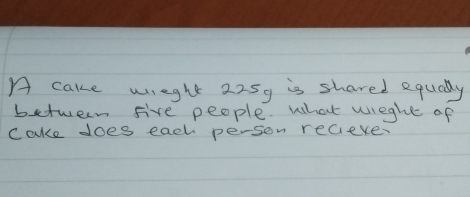 A cake wieght 225g is shared equally
between five people. what wieght of
Cake does each person recieve.